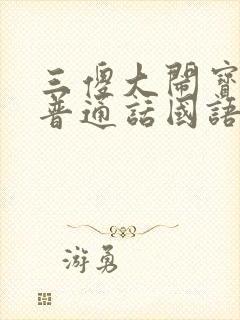 三傻大闹寳
普通話國語
游勇